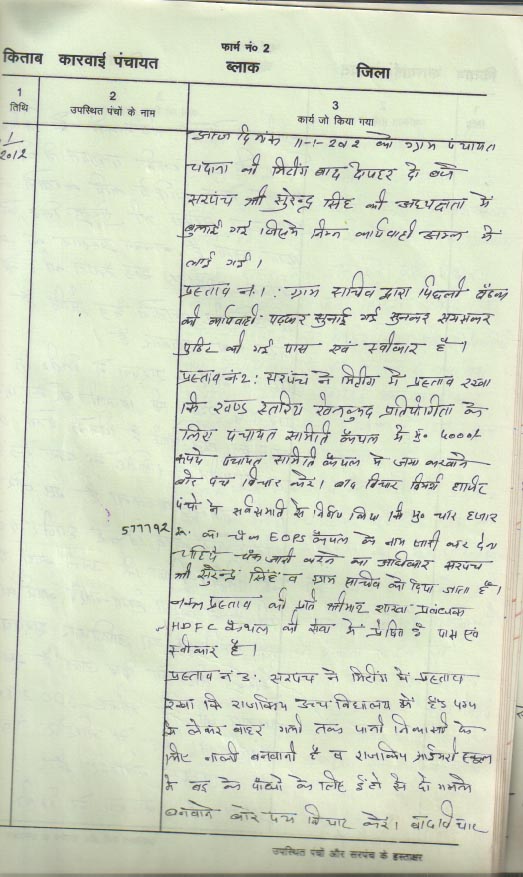 फार्म नं० 2
किताब कारवाई पंचायत ब्लाक जिला
1 2 3
तिथि उपस्थित पंचों के नाम कार्य जो किया गया
1/2012
आज दिनांक 11-1-2012 को ग्राम पंचायत
की मिटींग बाद दोपहर दो बजे
सरपंच श्री सुरेन्द्र सिंह की अध्यक्षता में
बुलाई गई जिसमे निम्न कार्यवाही अमल में
लाई गई।
प्रस्ताव नं.1: ग्राम सचिव द्वारा पिछली बैठक
की कार्यवाही पढ़कर सुनाई गई सुनकर समझकर
पुष्टि की गई पास एवं स्वीकार है।
प्रस्ताव नं 2: सरपंच ने मिटींग में प्रस्ताव रखा
कि खण्ड स्तरिय खेलकुद प्रतियोगीता के
लिए पंचायत समिति कैथल में रु० 4000/-
रूपये पंचायत समिति कैथल मे जमा करवाने
बारे पंच विचार करें। बाद विचार विमर्श
पंचो ने सर्वसमति से निर्णय लिया कि मु० चार हजार
577792 रू. का चैक कैथल के नाम जारी कर देना
चाहिये चैक जारी करने का अधिकार सरपंच
श्री सुरेन्द्र सिंह व ग्राम सचिव को दिया जाता है।
प्रस्ताव की प्रति श्रीमान शाखा प्रबंधक
HDFC कैथल की सेवा में प्रेषित है पास एवं
स्वीकार है।
प्रस्ताव नं 3: सरपंच ने मिटींग में प्रस्ताव
रखा कि राजकिय उच्च विद्यालय में हैंड पम्प
से लेकर बाहर गली तक पानी निकासी के
लिए नाली बनवानी है व राजकिय प्राईमरी स्कूल
मे बड के पौधो के लिए ईंटो से दो गमले
बनवाने बारे पंच विचार करें। बाद विचार
उपस्थित पंचों और सरपंच के हस्ताक्षर